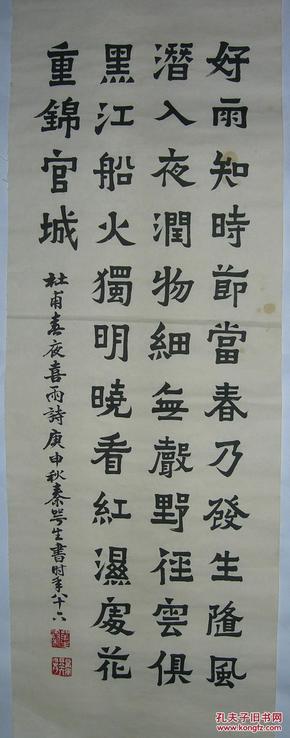 好雨知時節當春乃發生隨風
潛入夜潤物細無聲野徑雲俱
黑江船火獨明曉看紅濕處花
重錦官城
杜甫春夜喜雨詩庚申秋秦咢生書时年八十六
孔夫子旧书网